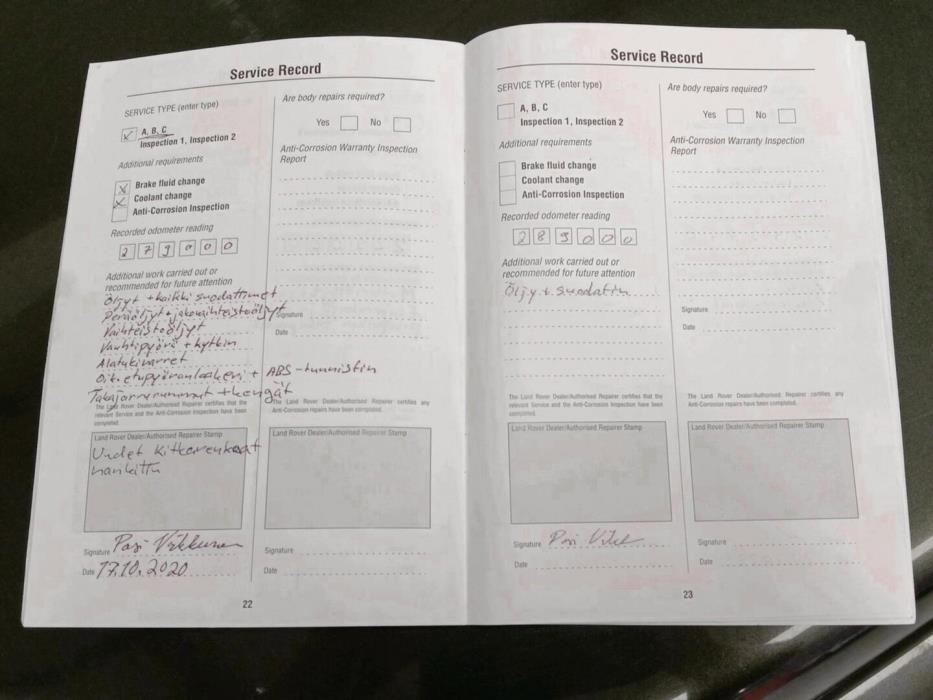 Service Record
SERVICE TYPE (enter type)
A, B, C
Inspection 1, Inspection 2
Additional requirements
Brake fluid change
Coolant change
Anti-Corrosion Inspection
Recorded odometer reading
279000
Additional work carried out or
recommended for future attention
Öljyt + kaikki suodattimet
Peräöljyt + jakovaihteistoöljyt
Vaihteistoöljyt
Vauhtipyörä + kytkin
Alatukivarret
Oik. etupyöränlaakeri + ABS-tunnistin
Takajarrurummut + kengät
The Land Rover Dealer/Authorised Repairer certifies that the
relevant Service and the Anti-Corrosion Inspection have been
completed.
Land Rover Dealer/Authorised Repairer Stamp
Uudet kitkarenkaat
hankittu
Signature Pasi
Date 17.10.2020
Are body repairs required?
Yes No
Anti-Corrosion Warranty Inspection
Report
Signature
Date
The Land Rover Dealer/Authorised Repairer certifies any
Anti-Corrosion repairs have been completed.
Land Rover Dealer/Authorised Repairer Stamp
Signature
Date
22
Service Record
SERVICE TYPE (enter type)
A, B, C
Inspection 1, Inspection 2
Additional requirements
Brake fluid change
Coolant change
Anti-Corrosion Inspection
Recorded odometer reading
289000
Additional work carried out or
recommended for future attention
Öljy + suodatin
The Land Rover Dealer/Authorised Repairer certifies that the
relevant Service and the Anti-Corrosion Inspection have been
completed.
Land Rover Dealer/Authorised Repairer Stamp
Signature Pasi
Date
Are body repairs required?
Yes No
Anti-Corrosion Warranty Inspection
Report
Signature
Date
The Land Rover Dealer/Authorised Repairer certifies any
Anti-Corrosion repairs have been completed.
Land Rover Dealer/Authorised Repairer Stamp
Signature
Date
23